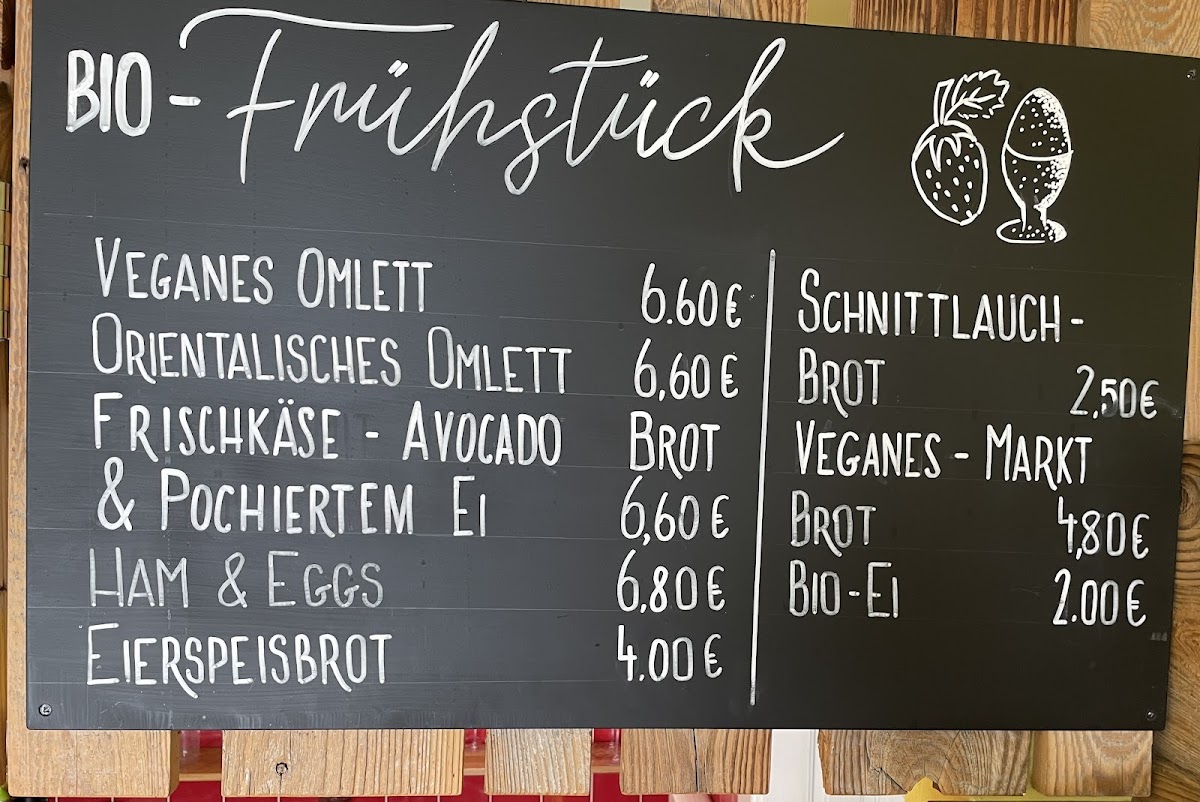 BIO - Frühstück
VEGANES OMLETT 6.60 €
ORIENTALISCHES OMLETT 6,60 €
FRISCHKÄSE - AVOCADO BROT
& POCHIERTEM EI 6,60 €
HAM & EGGS 6,80 €
EIERSPEISBROT 4.00 €
SCHNITTLAUCH -
BROT 2,50 €
VEGANES - MARKT
BROT 4,80 €
BIO - EI 2.00 €